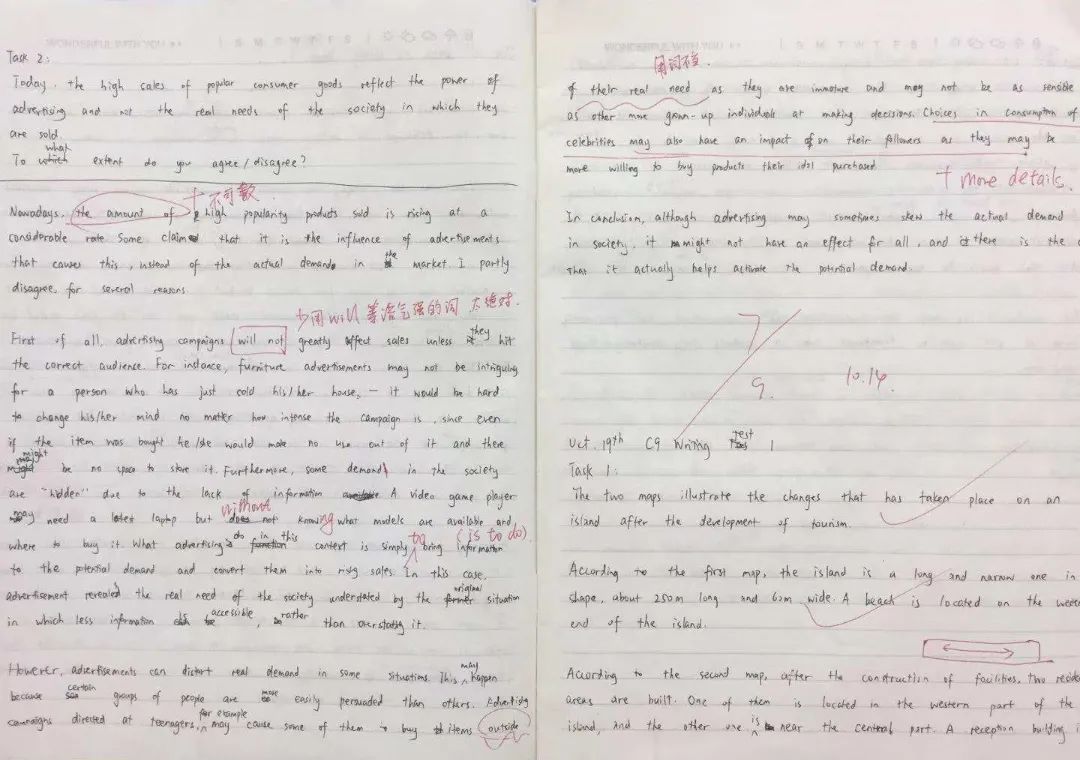 Task 2:
Today, the high sales of popular consumer goods reflect the power of
advertising and not the real needs of the society in which they
are sold.
what
To which extent do you agree/disagree?
+不可数
Nowadays, the amount of high popularity products sold is rising at a
considerable rate. Some claim that it is the influence of advertisements
that causes this, instead of the actual demand in the market. I partly
disagree, for several reasons.
少用will 等语气强的词 太绝对.
First of all, advertising campaigns will not greatly affect sales unless they hit
the correct audience. For instance, furniture advertisements may not be intriguing
for a person who has just cold his/her house, — it would be hard
to change his/her mind no matter how intense the campaign is, since even
if the item was bought he/she would make no use out of it and there
might be no space to store it. Furthermore, some demand in the society
are "hidden" due to the lack of information. A video game player
without
may need a latest laptop but does not knowing what models are available and
to (is to do).
where to buy it. What advertising do in this context is simply bring information
to the potential demand and convert them into rising sales. In this case,
advertisement revealed the real need of the society understated by the original situation
in which less information accessible, rather than overstating it.
However, advertisements can distort real demand in some situations. This may happen
because certain groups of people are more easily persuaded than others. Advertising
campaigns directed at teenagers, for example may cause some of them buy items outside
WONDERFUL WITH YOU
用词不当.
of their real need as they are immature and may not be as sensible
as other more grown-up individuals at making decisions. Choices in consumption of
celebrities may also have an impact on their followers as they may be
more willing to buy products their idol purchased.
+ more details.
In conclusion, although advertising may sometimes skew the actual demand
in society, it might not have an effect for all, and there is the
that it actually helps activate the potential demand.
7
9.
10.14.
Oct. 19th C9 Writing Test 1
Task 1:
The two maps illustrate the changes that has taken place on an
island after the development of tourism.
According to the first map, the island is a long and narrow one in
shape, about 250m long and 60m wide. A beach is located on the western
end of the island.
According to the second map, after the construction of facilities, two
areas are built. One of them is located in the western part of the
island, and the other one is near the central part. A reception building